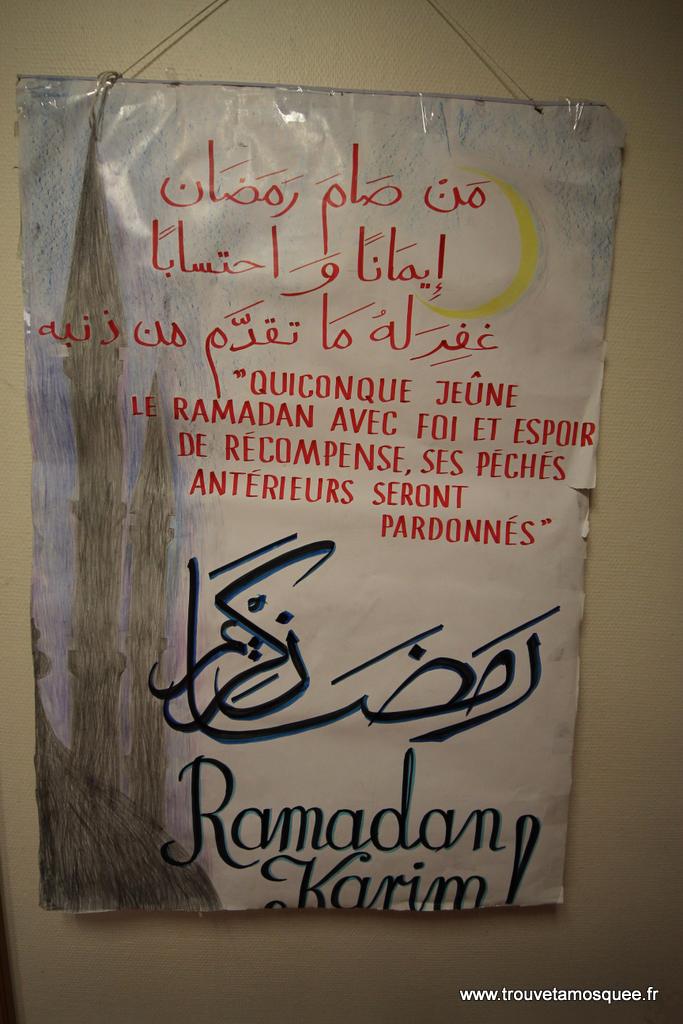 مَنْ صَامَ رَمَضَان
إِيمَانًا وَ احتسابًا
غفِرَ لهُ مَا تقدَّم من ذنبه
"QUICONQUE JEÛNE
LE RAMADAN AVEC FOI ET ESPOIR
DE RÉCOMPENSE, SES PÉCHÉS
ANTÉRIEURS SERONT
PARDONNÉS"
رمضان كريم
Ramadan
Karim!
www.trouvetamosquee.fr